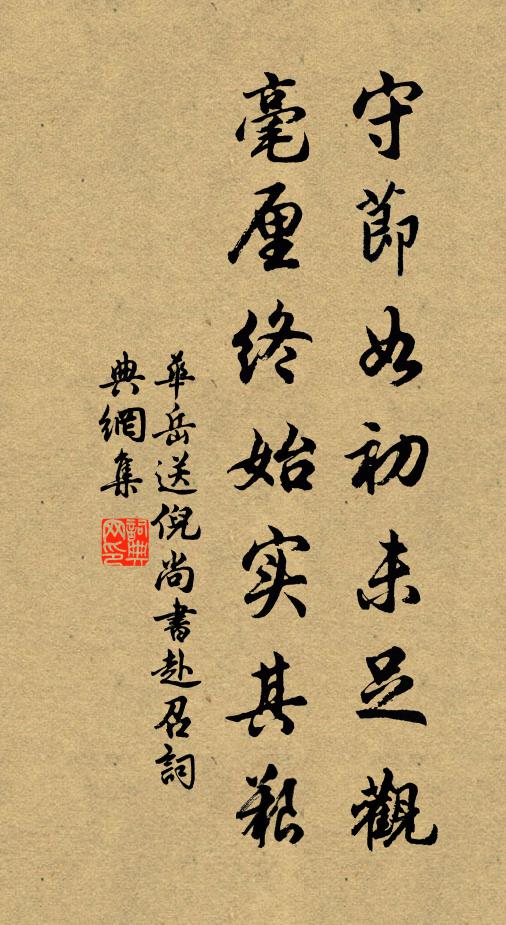 守節如初未足觀
毫厘終始实其艱
華岳送倪尚書赴召詞
典網集
詞典網印